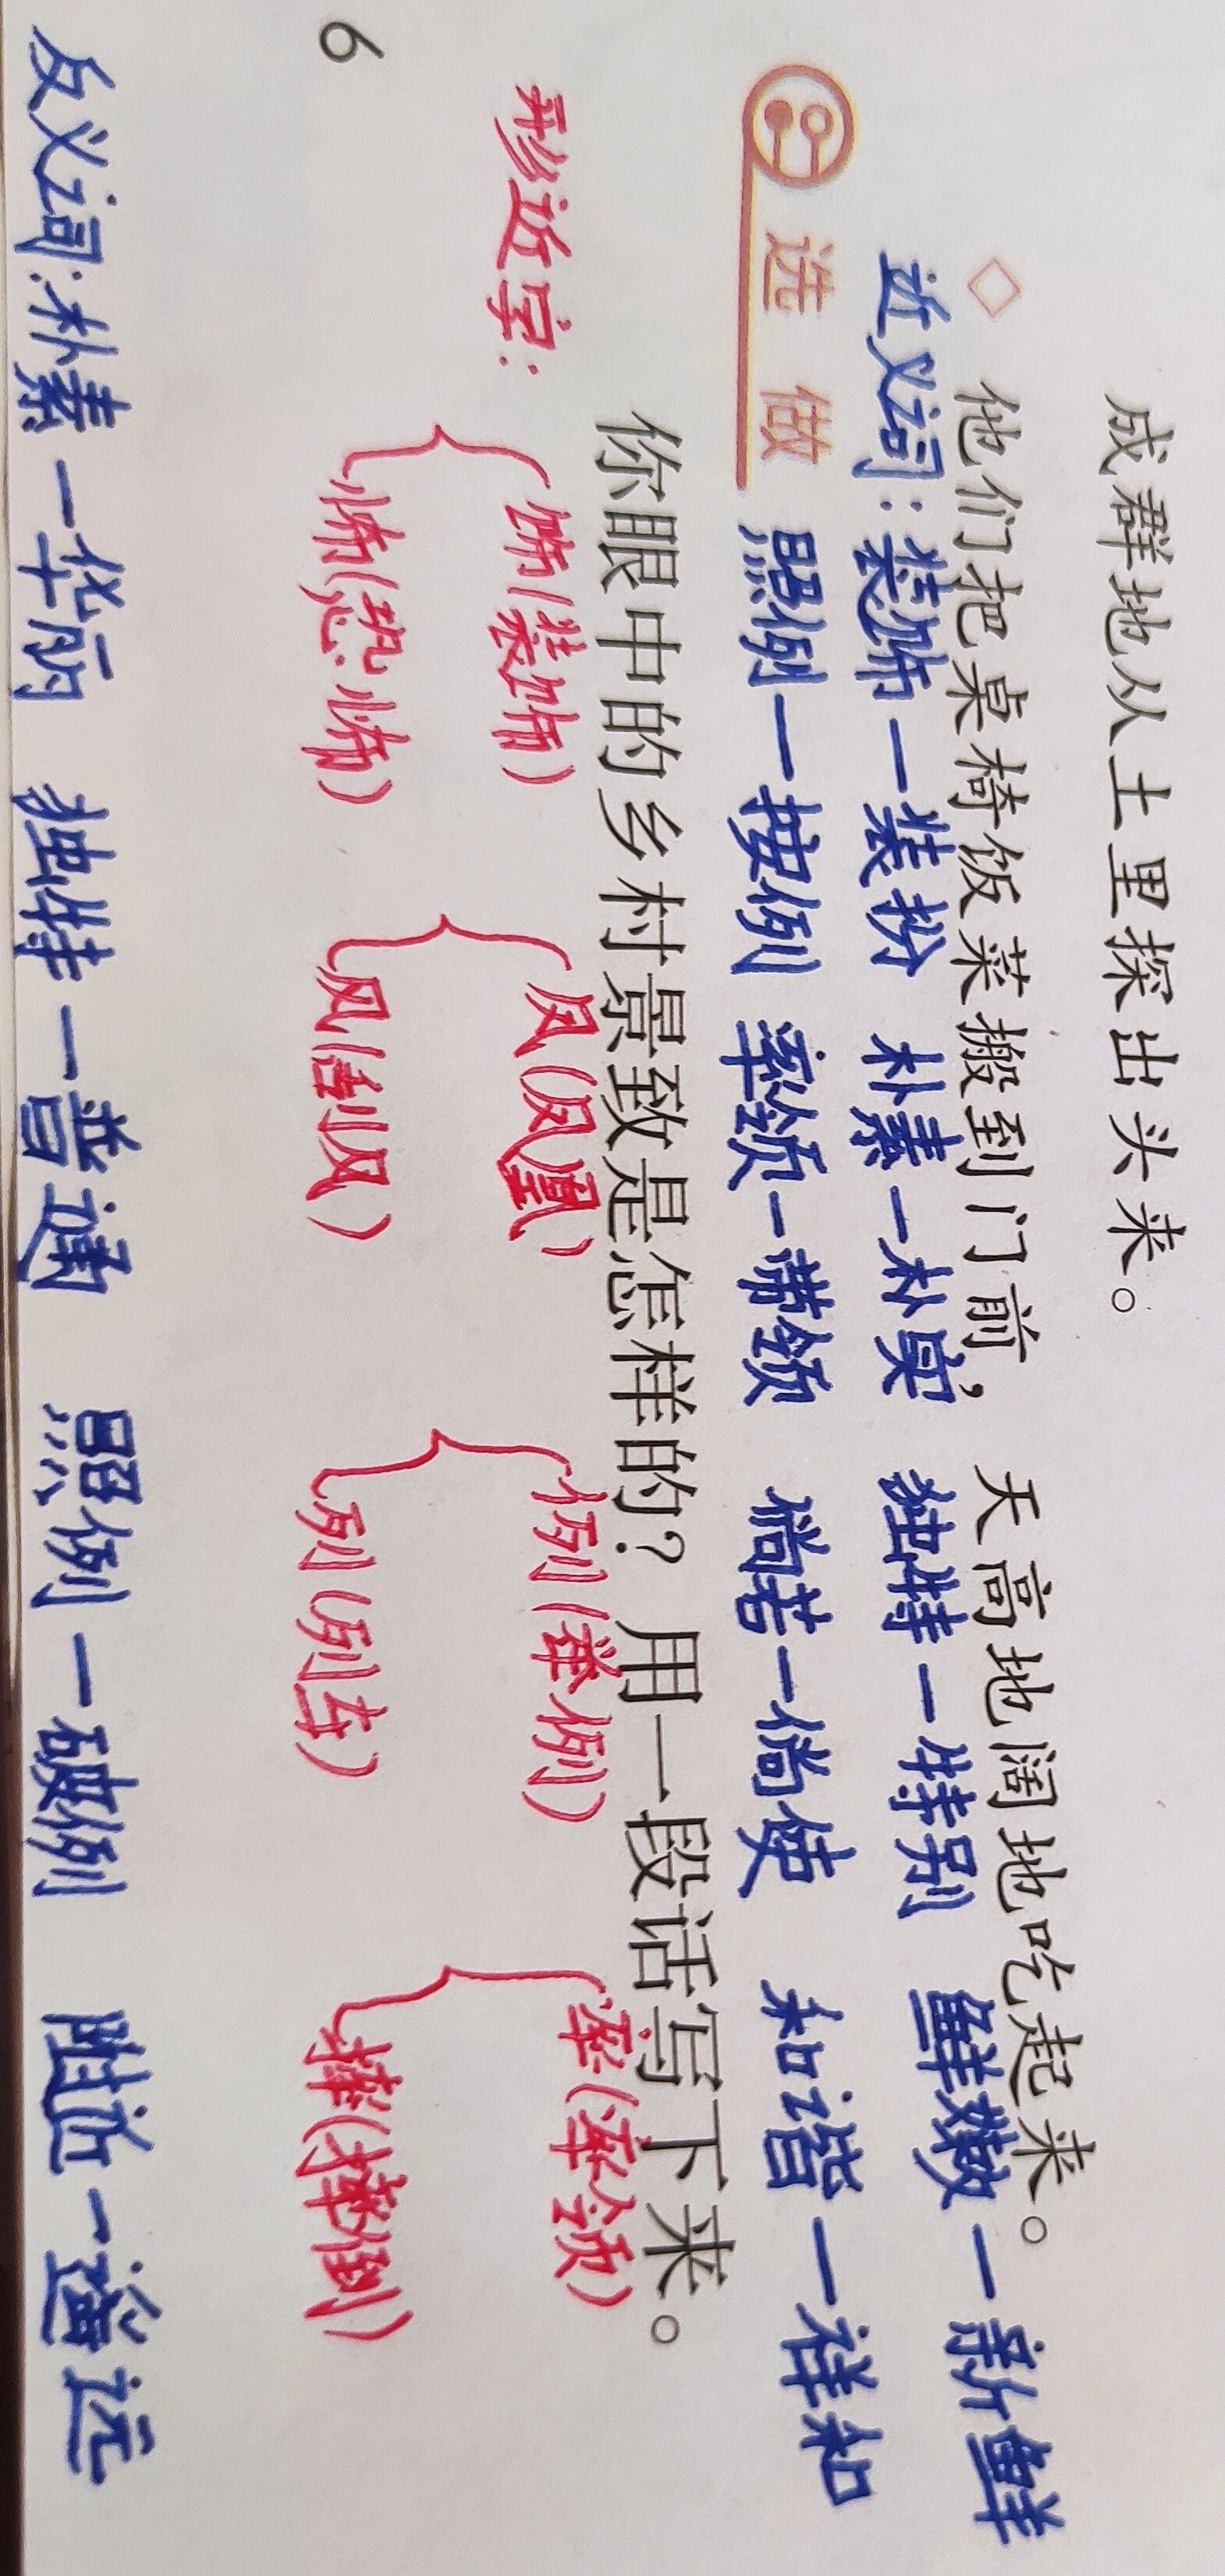 成群地从土里探出头来。
◇ 他们把桌椅饭菜搬到门前，天高地阔地吃起来。
近义词：装饰—装扮 朴素—朴实 独特—特别 鲜嫩—新鲜
照例—按例 率领—带领 倘若—倘使 和谐—祥和
选做
你眼中的乡村景致是怎样的？用一段话写下来。
形近字：
饰(装饰) 凤(凤凰) 例(举例) 率(率领)
怖(恐怖) 风(刮风) 列(列车) 摔(摔倒)
6
反义词：朴素—华丽 独特—普通 照例—破例 附近—遥远